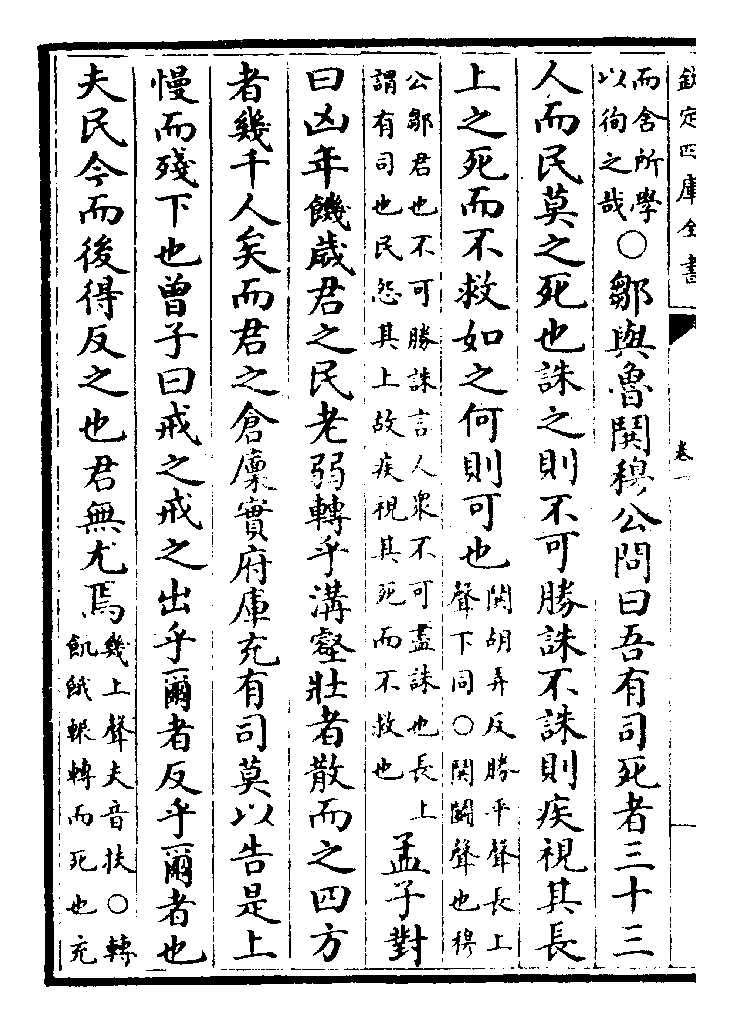 欽定四庫全書
卷一
而舍所學以徇之哉○鄒與魯鬨穆公問曰吾有司死者三十三
人而民莫之死也誅之則不可勝誅不誅則疾視其長
上之死而不救如之何則可也鬨胡弄反勝平聲長上聲下同○鬨鬭聲也穆
公鄒君也不可勝誅言人衆不可盡誅也長上謂有司也民怨其上故疾視其死而不救也孟子對
曰凶年饑歲君之民老弱轉乎溝壑壯者散而之四方
者幾千人矣而君之倉廩實府庫充有司莫以告是上
慢而殘下也曾子曰戒之戒之出乎爾者反乎爾者也
夫民今而後得反之也君無尤焉幾上聲夫音扶○轉飢餓輾轉而死也充